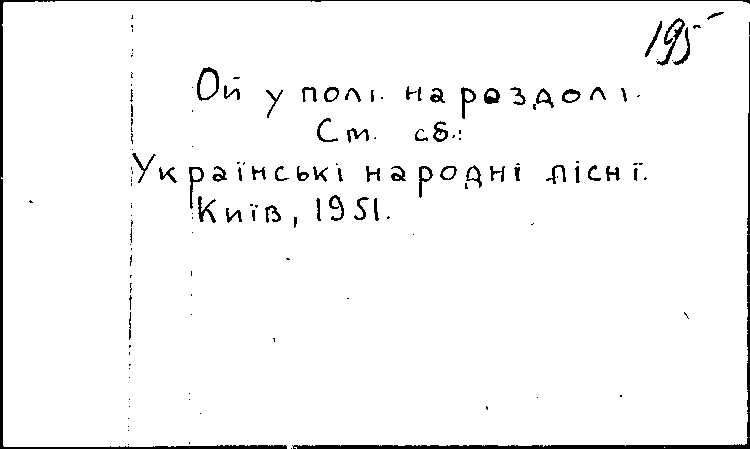 195
Ой у полі на роздолі.
См. сб.:
Українські народні пісні.
Київ, 1951.